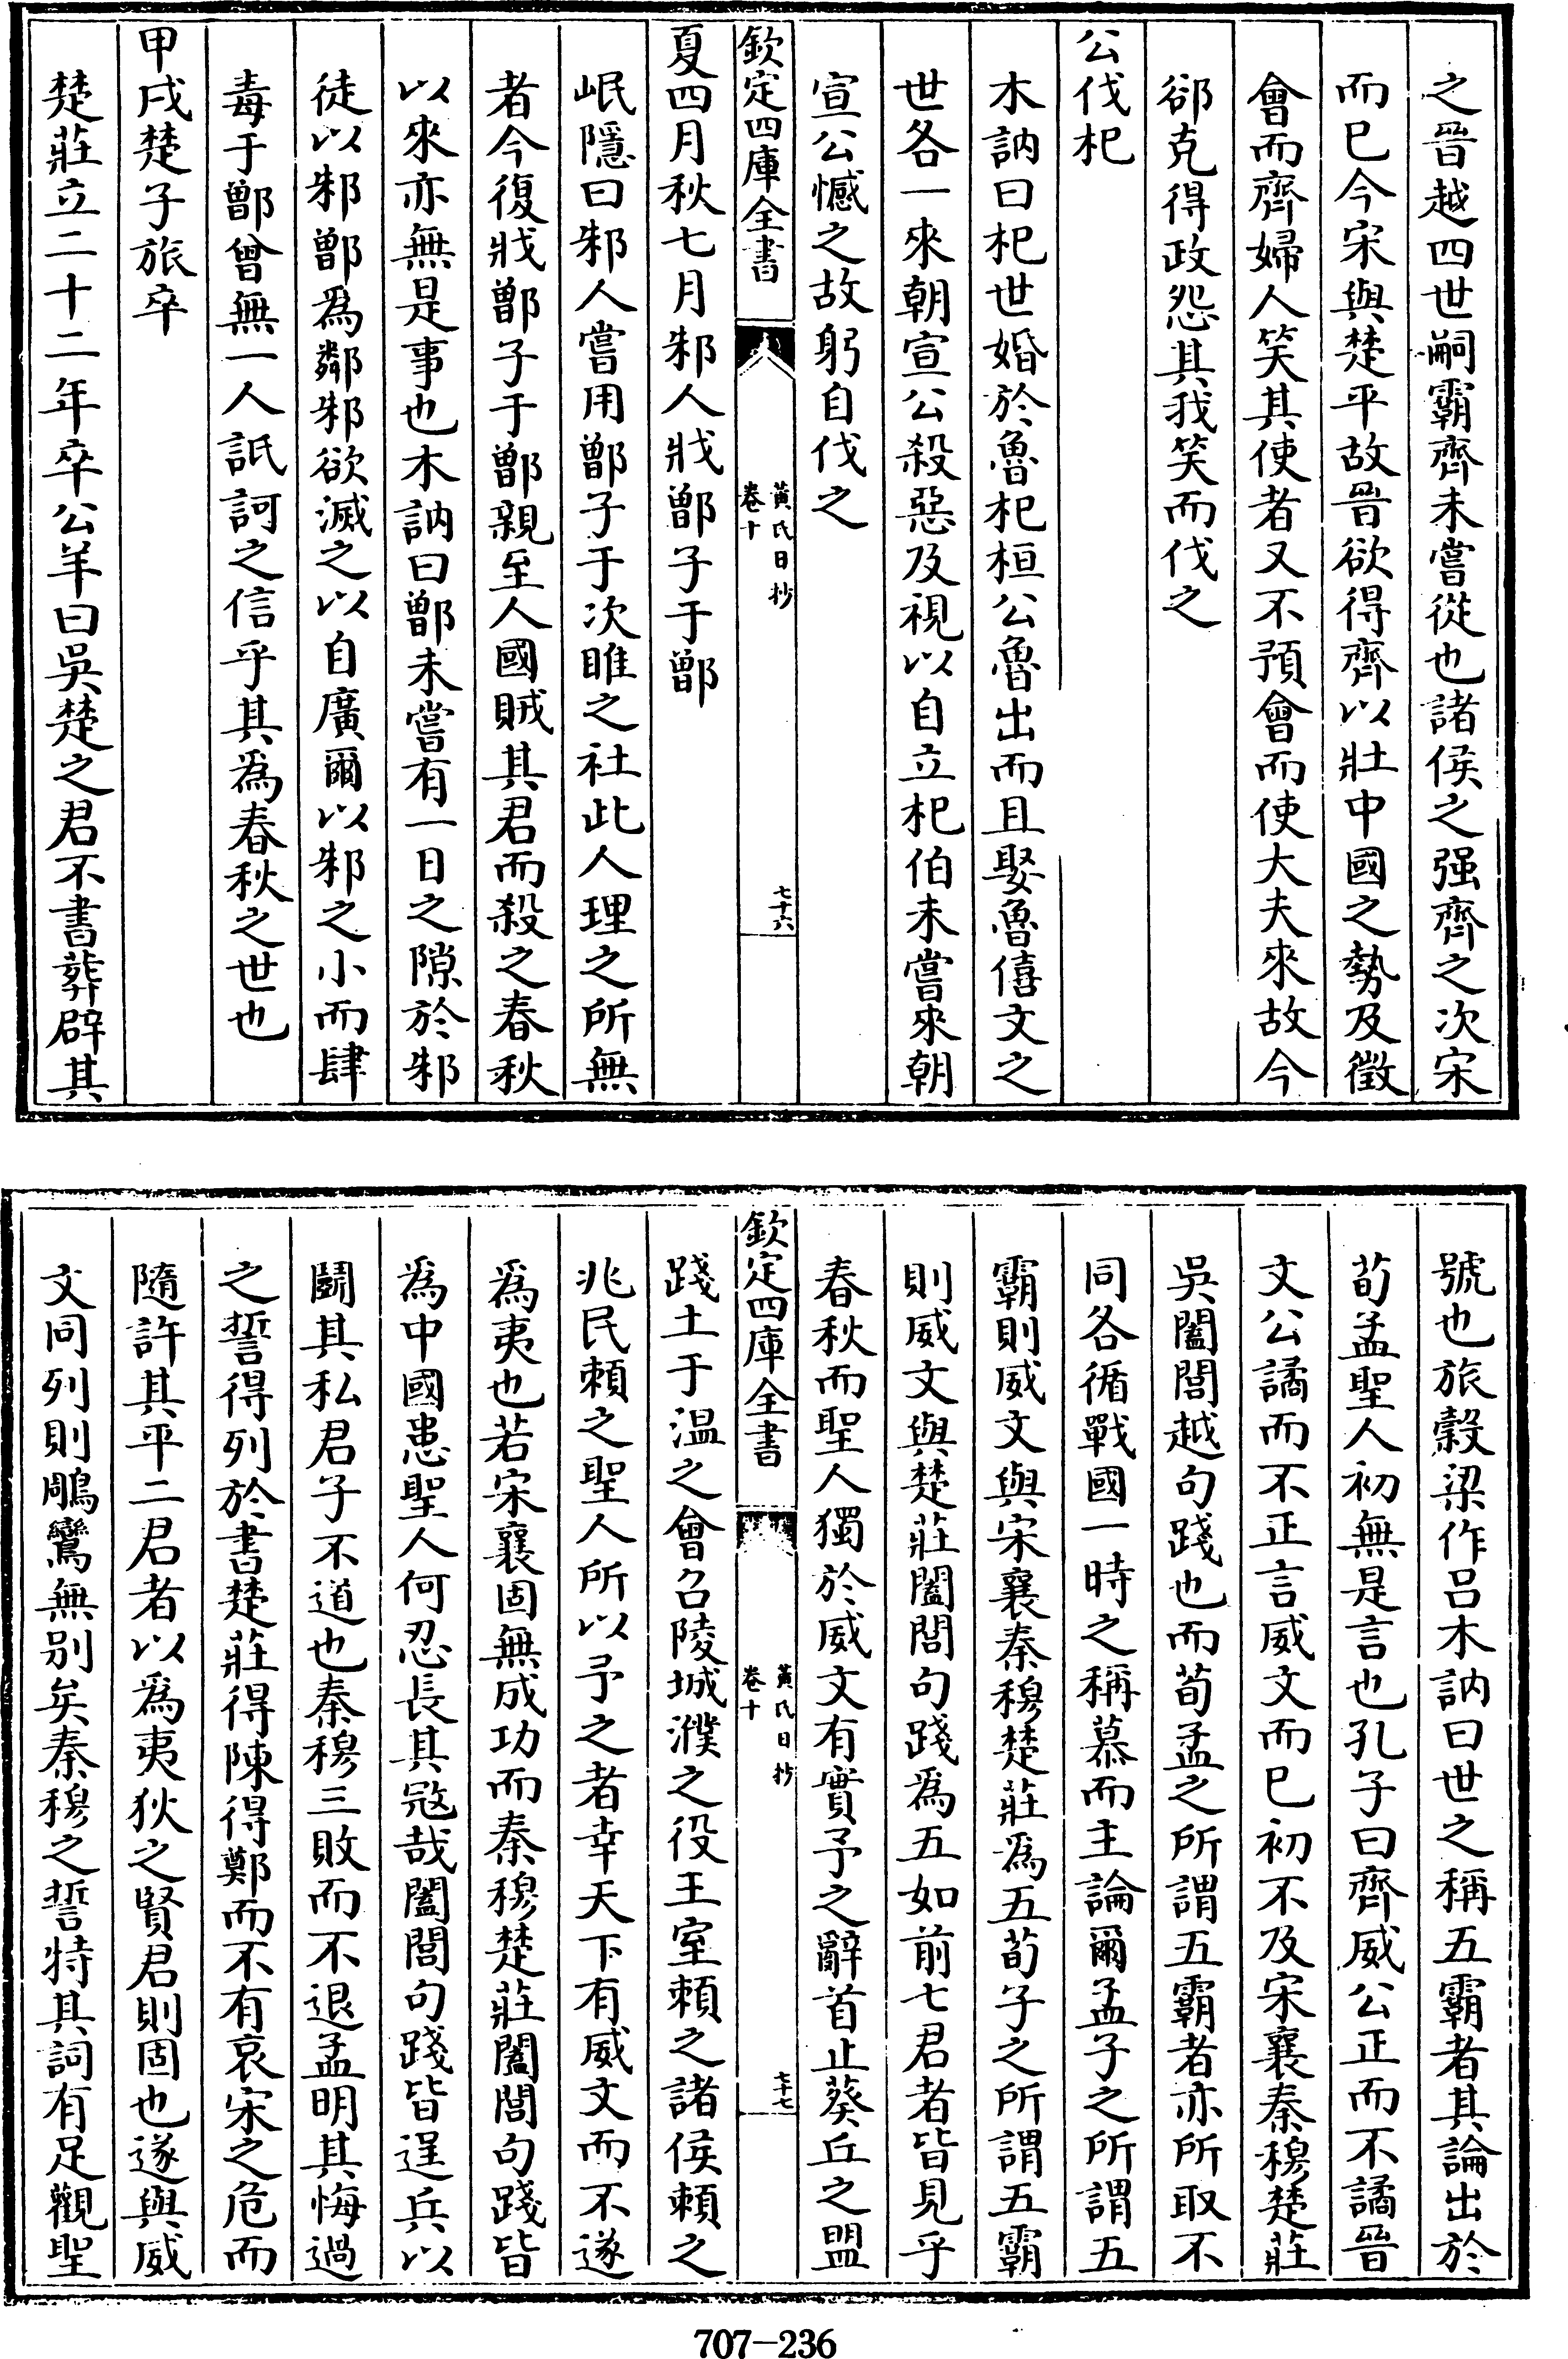 之晉越四世嗣霸齊未嘗從也諸侯之强齊之次宋
而已今宋與楚平故晉欲得齊以壯中國之勢及徵
會而齊婦人笑其使者又不預會而使大夫來故今
郤克得政怨其我笑而伐之
公伐杞
木訥曰杞世婚於魯杞桓公魯出而且娶魯僖文之
世各一來朝宣公殺惡及視以自立杞伯未嘗來朝
宣公憾之故躬自伐之
欽定四庫全書
黃氏日抄
卷十
七十六
夏四月秋七月邾人戕鄫子于鄫
岷隱曰邾人嘗用鄫子于次睢之社此人理之所無
者今復戕鄫子于鄫親至人國賊其君而殺之春秋
以來亦無是事也木訥曰鄫未嘗有一日之隙於邾
徒以邾鄫爲鄰邾欲滅之以自廣爾以邾之小而肆
毒于鄫曾無一人詆訶之信乎其爲春秋之世也
甲戌楚子旅卒
楚莊立二十二年卒公羊曰吳楚之君不書葬辟其
號也旅穀梁作吕木訥曰世之稱五霸者其論出於
荀孟聖人初無是言也孔子曰齊威公正而不譎晉
文公譎而不正言威文而已初不及宋襄秦穆楚莊
吳闔閭越句踐也而荀孟之所謂五霸者亦所取不
同各循戰國一時之稱慕而主論爾孟子之所謂五
霸則威文與宋襄秦穆楚莊爲五荀子之所謂五霸
則威文與楚莊闔閭句踐爲五如前七君者皆見乎
春秋而聖人獨於威文有實予之辭首止葵丘之盟
欽定四庫全書
黃氏日抄
卷十
七十七
踐土于温之會召陵城濮之役王室頼之諸侯頼之
兆民頼之聖人所以予之者幸天下有威文而不遂
爲夷也若宋襄固無成功而秦穆楚莊闔閭句踐皆
爲中國患聖人何忍長其寇哉闔閭句踐皆逞兵以
鬭其私君子不道也秦穆三敗而不退孟明其悔過
之誓得列於書楚莊得陳得鄭而不有哀宋之危而
隨許其平二君者以爲夷狄之賢君則固也遂與威
文同列則鵰鸞無别矣秦穆之誓特其詞有足觀聖
707-236